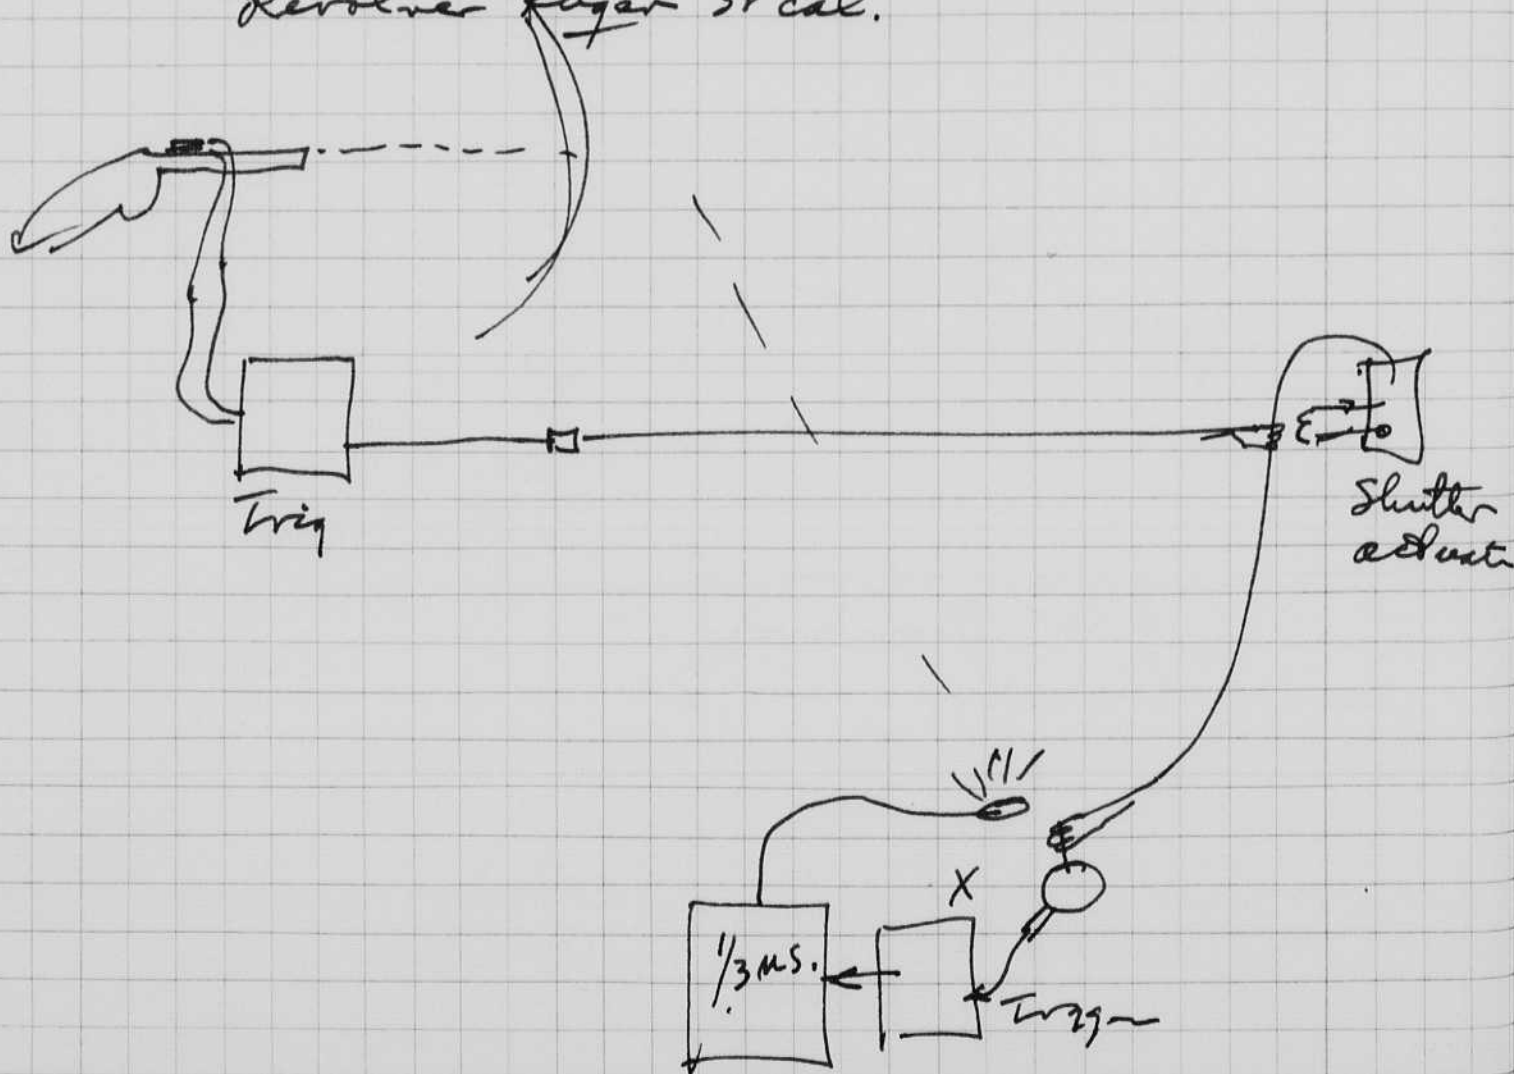 Revolver Ruger 38 cal.
Trig
Shutter
actuato
X
1/3 μs.
Trigger